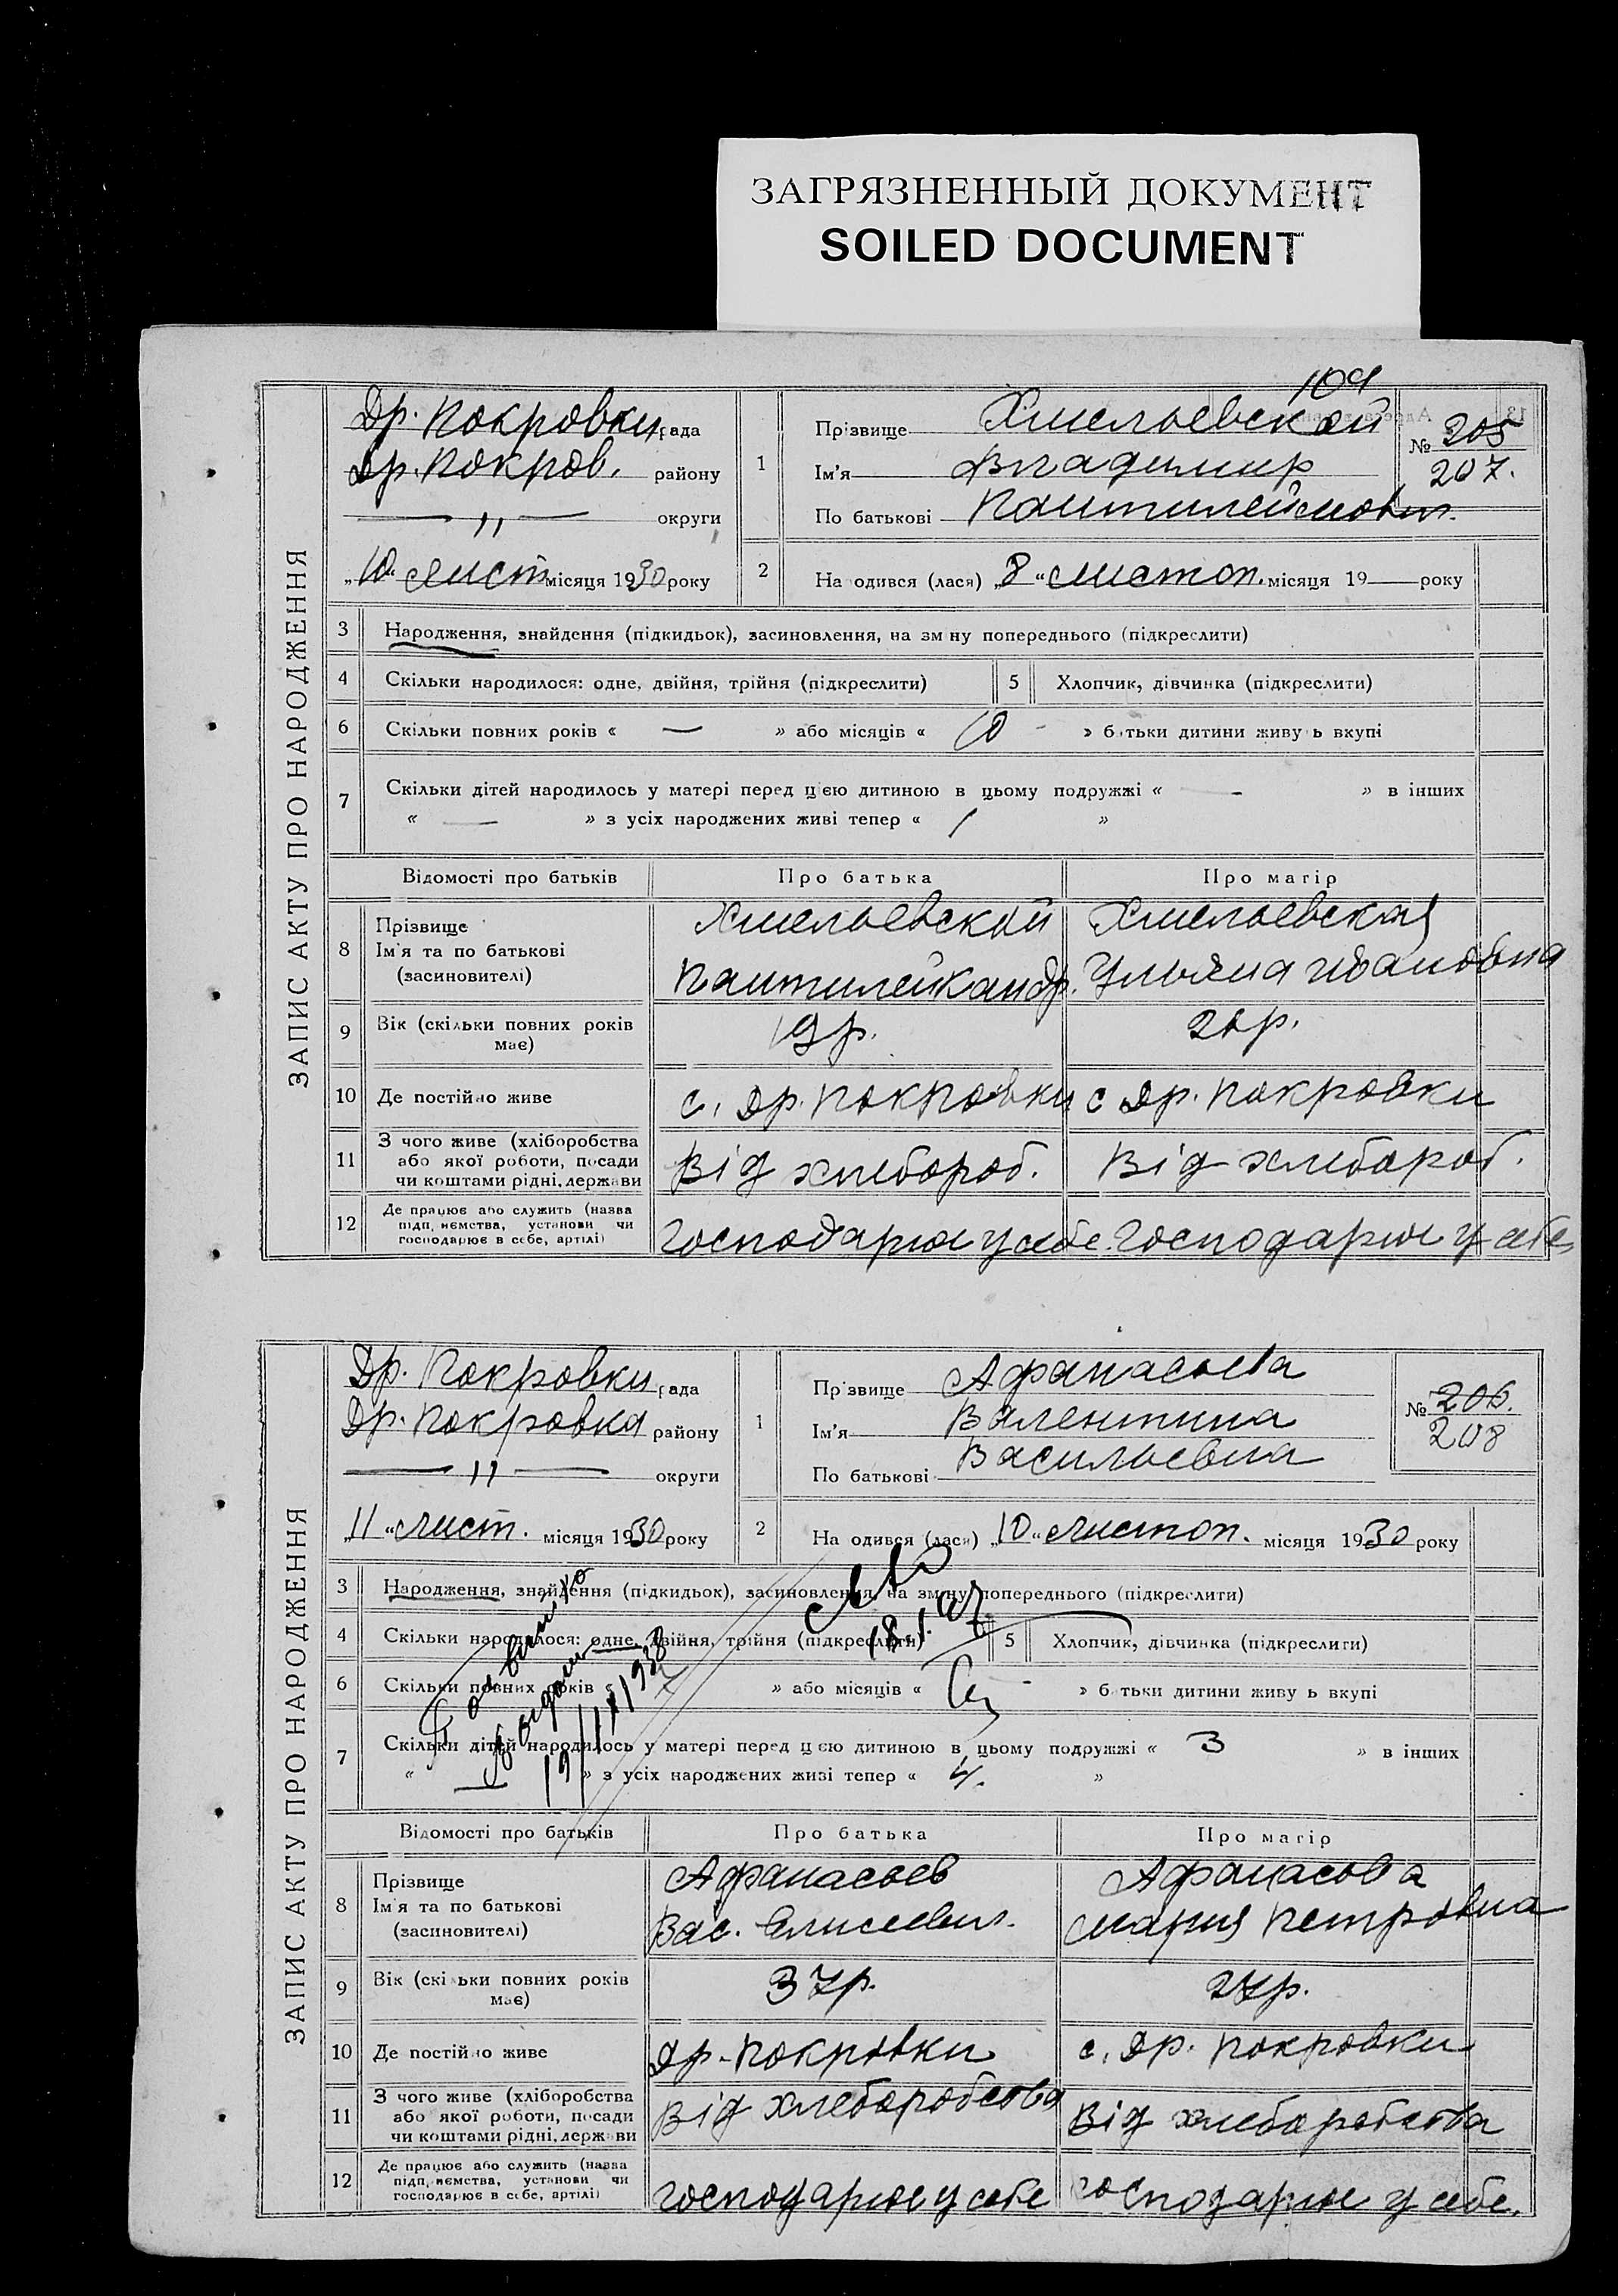 ЗАГРЯЗНЕННЫЙ ДОКУМЕНТ
SOILED DOCUMENT
109
ЗАПИС АКТУ ПРО НАРОДЖЕННЯ
Др. Покровки рада
Др. Покров. району
— " — округи
„10“ лист місяця 1930 року
1 Прізвище Хмельевской
Ім'я Владимир
По батькові Пантилеймович.
№ 205
207.
2 На одився (лася) „8“ листоп. місяця 19— року
3 Народження, знайдення (підкидьок), засиновлення, на зм ну попереднього (підкреслити)
4 Скільки народилося: одне, двійня, трійня (підкреслити)
5 Хлопчик, дівчинка (підкреслити)
6 Скільки повних років « — » або місяців « 10 - » б тьки дитини живу ь вкупі
7 Скільки дітей народилось у матері перед цією дитиною в цьому подружжі « — » в інших
« — » з усіх народжених живі тепер « 1 »
Відомості про батьків Про батька Про матір
8 Прізвище
Ім'я та по батькові
(засиновителі)
Хмельевской
Пантилей Кандр.
Хмельевская
Ульяна Ивановна
9 Вік (скільки повних років
має)
19 р.
20 р.
10 Де постійно живе с. Др. Покровки с Др. Покровки
11 З чого живе (хліборобства
або якої роботи, посади
чи коштами рідні, держави
Від хлебороб.
Від хлебороб.
12 Де працює або служить (назва
підп, иємства, установи чи
господарює в себе, артілі)
господарює у себе.
господарює у себе
ЗАПИС АКТУ ПРО НАРОДЖЕННЯ
Др. Покровки рада
Др. Покровка району
— " — округи
„11“ лист. місяця 1930 року
1 Прізвище Афанасьева
Ім'я Валентина
По батькові Васильевна
№ 206.
208
2 На одився (лася) „10“ листоп. місяця 1930 року
3 Народження, знайдення (підкидьок), засиновлення, на зм ну попереднього (підкреслити)
4 Скільки народилося: одне, двійня, трійня (підкреслити)
5 Хлопчик, дівчинка (підкреслити)
6 Скільки повних років « » або місяців « » б тьки дитини живу ь вкупі
7 Скільки дітей народилось у матері перед цією дитиною в цьому подружжі « 3 » в інших
« — » з усіх народжених живі тепер « 4. »
Відомості про батьків Про батька Про матір
8 Прізвище
Ім'я та по батькові
(засиновителі)
Афанасьев
Вас. Елисеевич.
Афанасова
Мария Петровна
9 Вік (скі ьки повних років
має)
37 р.
27 р.
10 Де постійно живе Др. Покровки с. Др. Покровки
11 З чого живе (хліборобства
або якої роботи, посади
чи коштами рідні, держ ви
Від хлеборобства
Від хлеборобства
12 Де працює або служить (назва
підп, иємства, установи чи
господарює в себе, артілі)
господарює у себе
господарює у себе.